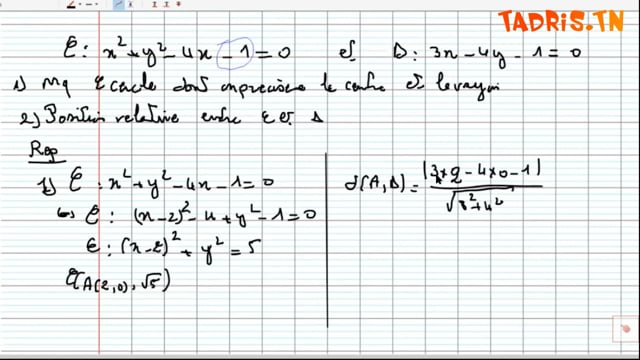 TADRIS.TN
C : x² + y² - 4x - 1 = 0 et Δ : 3x - 4y - 1 = 0
1) Mq C cercle dont on precisera le centre et le rayon
2) Position relative entre C et Δ
Rep
1) C : x² + y² - 4x - 1 = 0
⇔ C : (x-2)² - 4 + y² - 1 = 0
C : (x-2)² + y² = 5
C(A(2,0), √5)
d(A, Δ) = |3×2 - 4×0 - 1| / √(3² + 4²)